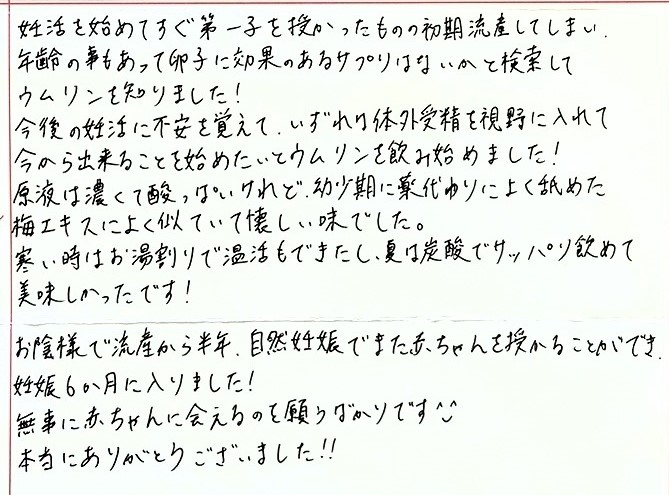 妊活を始めてすぐ第一子を授かったものの初期流産してしまい、
年齢の事もあって卵子に効果のあるサプリはないかと検索して
ウムリンを知りました!
今後の妊活に不安を覚えて、いずれは体外受精を視野に入れて
今から出来ることを始めたいとウムリンを飲み始めました!
原液は濃くて酸っぱいけれど、幼少期に薬代わりによく舐めた
梅エキスによく似ていて懐しい味でした。
寒い時はお湯割りで温活もできたし、夏は炭酸でサッパリ飲めて
美味しかったです!
お陰様で流産から半年、自然妊娠でまた赤ちゃんを授かることができ、
妊娠6か月に入りました!
無事に赤ちゃんに会えるのを願うばかりです^^
本当にありがとうございました!!